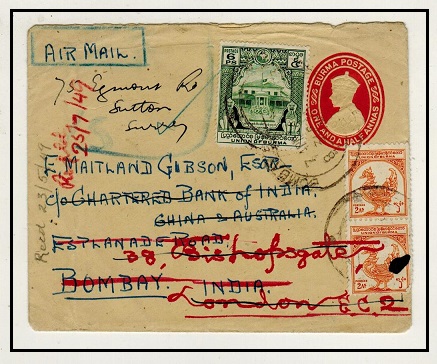 AIR MAIL.
75 Egmont Rd
Sutton
Surrey
Recd.
23/7/49
Recd. 23/5/49
BURMA POSTAGE
ONE AND A HALF ANNAS
POSTAGE
UNION OF BURMA
F. MAITLAND GIBSON, ESQ.
c/o CHARTERED BANK OF INDIA,
CHINA & AUSTRALIA.
ESPLANADE ROAD,
38, Bishopsgate
BOMBAY. INDIA.
London E.C.2
UNION OF BURMA
2As
UNION OF BURMA
2As